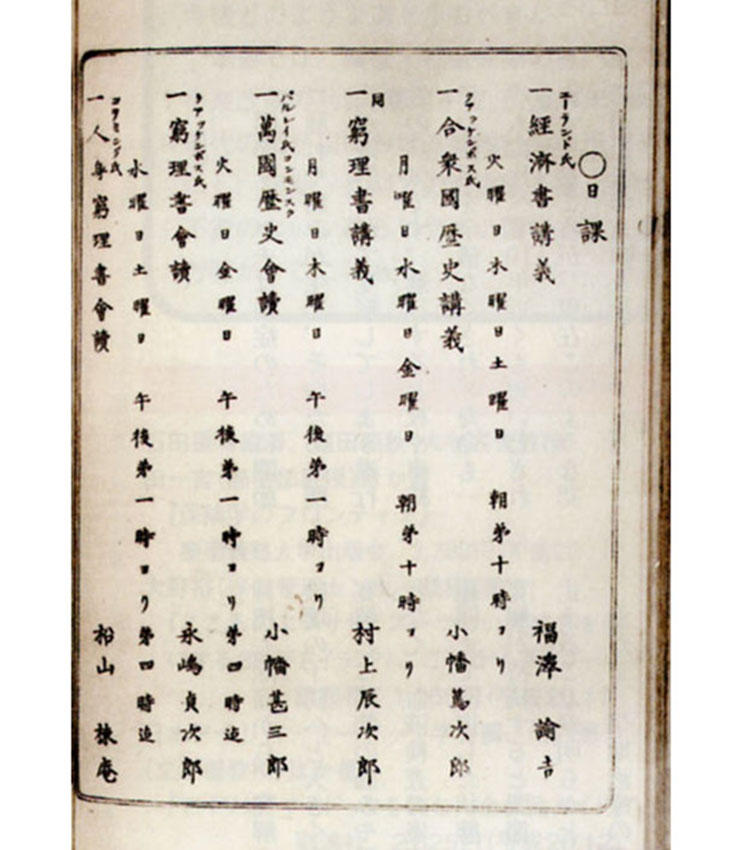 〇日課
エーランド氏
一經濟書講義 福澤諭吉
火曜日木曜日土曜日 朝第十時ヨリ
クアッケンボス氏
一合衆國歴史講義 小幡篤次郎
月曜日水曜日金曜日 朝第十時ヨリ
同
一窮理書講義 村上辰次郎
月曜日木曜日 午後第一時ヨリ
パルレイ氏コンモンスク
一萬國歴史會讀 小幡甚三郎
火曜日金曜日 午後第一時ヨリ第四時迄
クアッケンボス氏
一窮理書會讀 永嶋貞次郎
水曜日土曜日 午後第一時ヨリ第四時迄
一人身窮理書會讀 松山棟庵